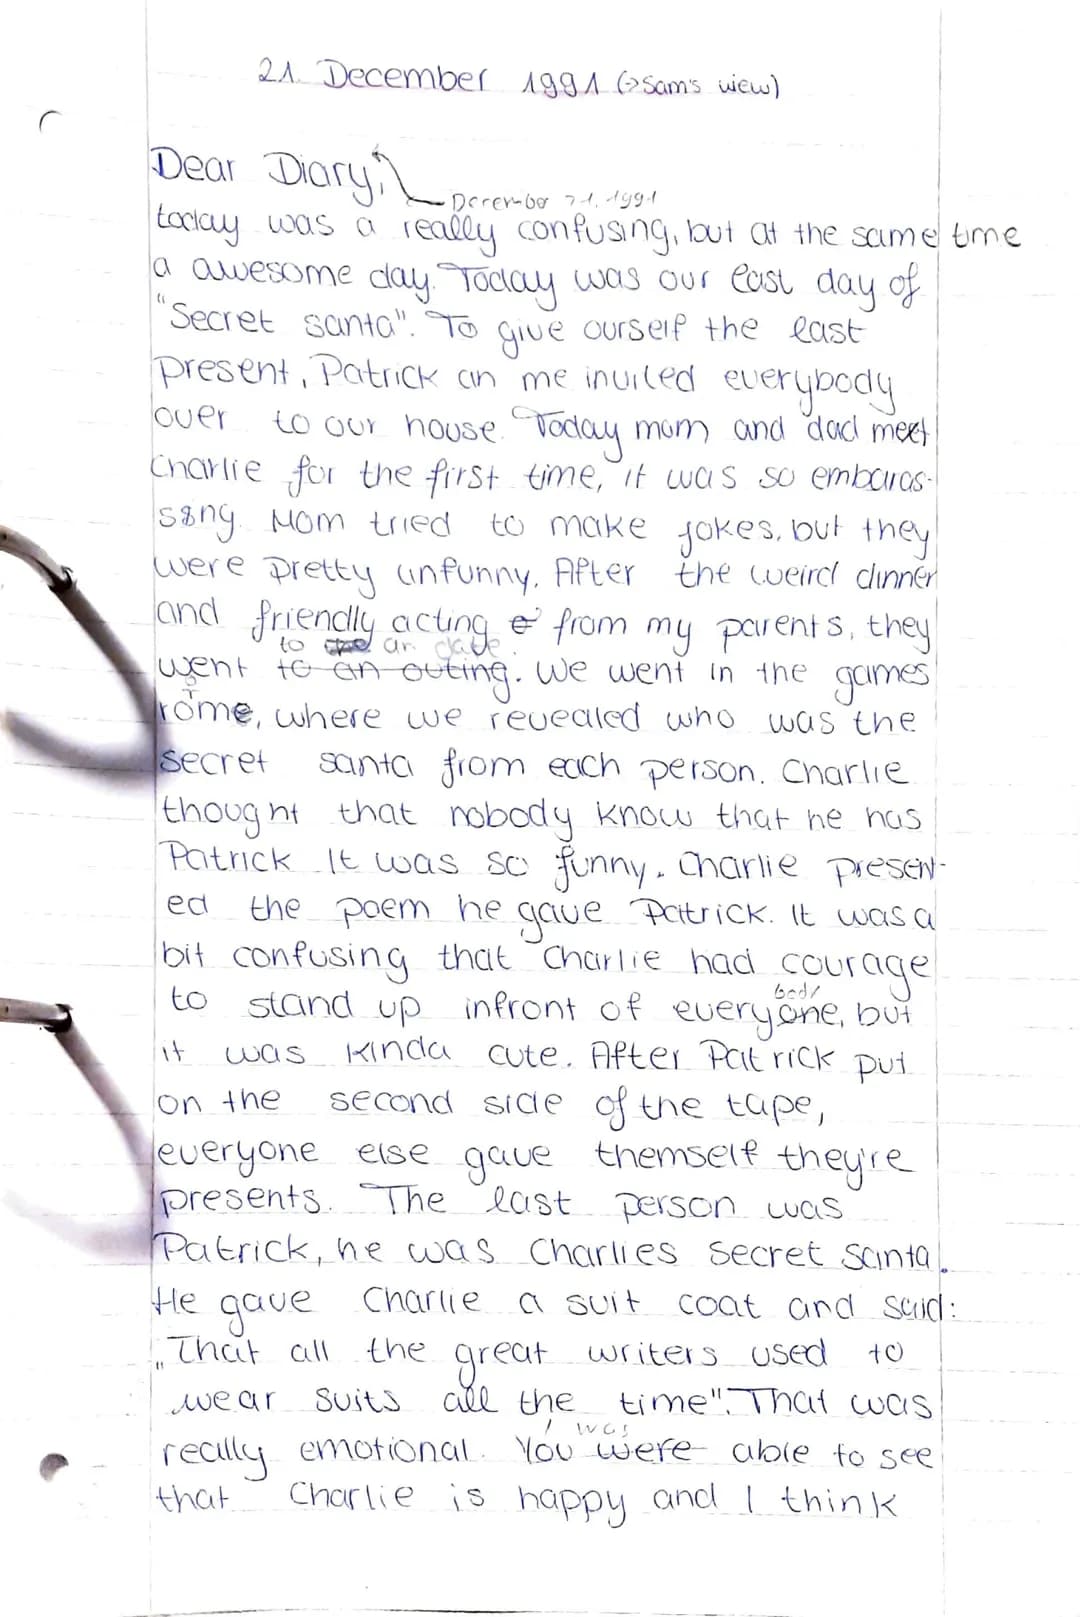 21. December 1991 (→Sam's wiew)
Dear Diary,
December 21, 1991
today was a really confusing, but at the same time
a awesome day. Today was our last day of
"Secret santa". To give ourself the last
present, Patrick an me invited everybody
over to our house. Today mom and dad meet
Charlie for the first time, it was so embaras-
sing. Mom tried to make jokes, but they
were pretty unfunny. After the weird dinner
and friendly acting from my parents, they
to an date.
went to an outing. We went in the games
rome, where we revealed who was the
secret santa from each person. Charlie
thought that nobody know that he has
Patrick. It was so funny. Charlie present-
ed the poem he gave Patrick. It was a
bit confusing that Charlie had courage
body
to stand up infront of everyone, but
it was kinda cute. After Patrick put
on the second side of the tape,
everyone else gave themself they're
presents. The last person was
Patrick, he was Charlies Secret Santa.
He gave Charlie a suit coat and said:
„That all the great writers used to
wear suits all the time". That was
I was
really emotional. You were able to see
that Charlie is happy and I think